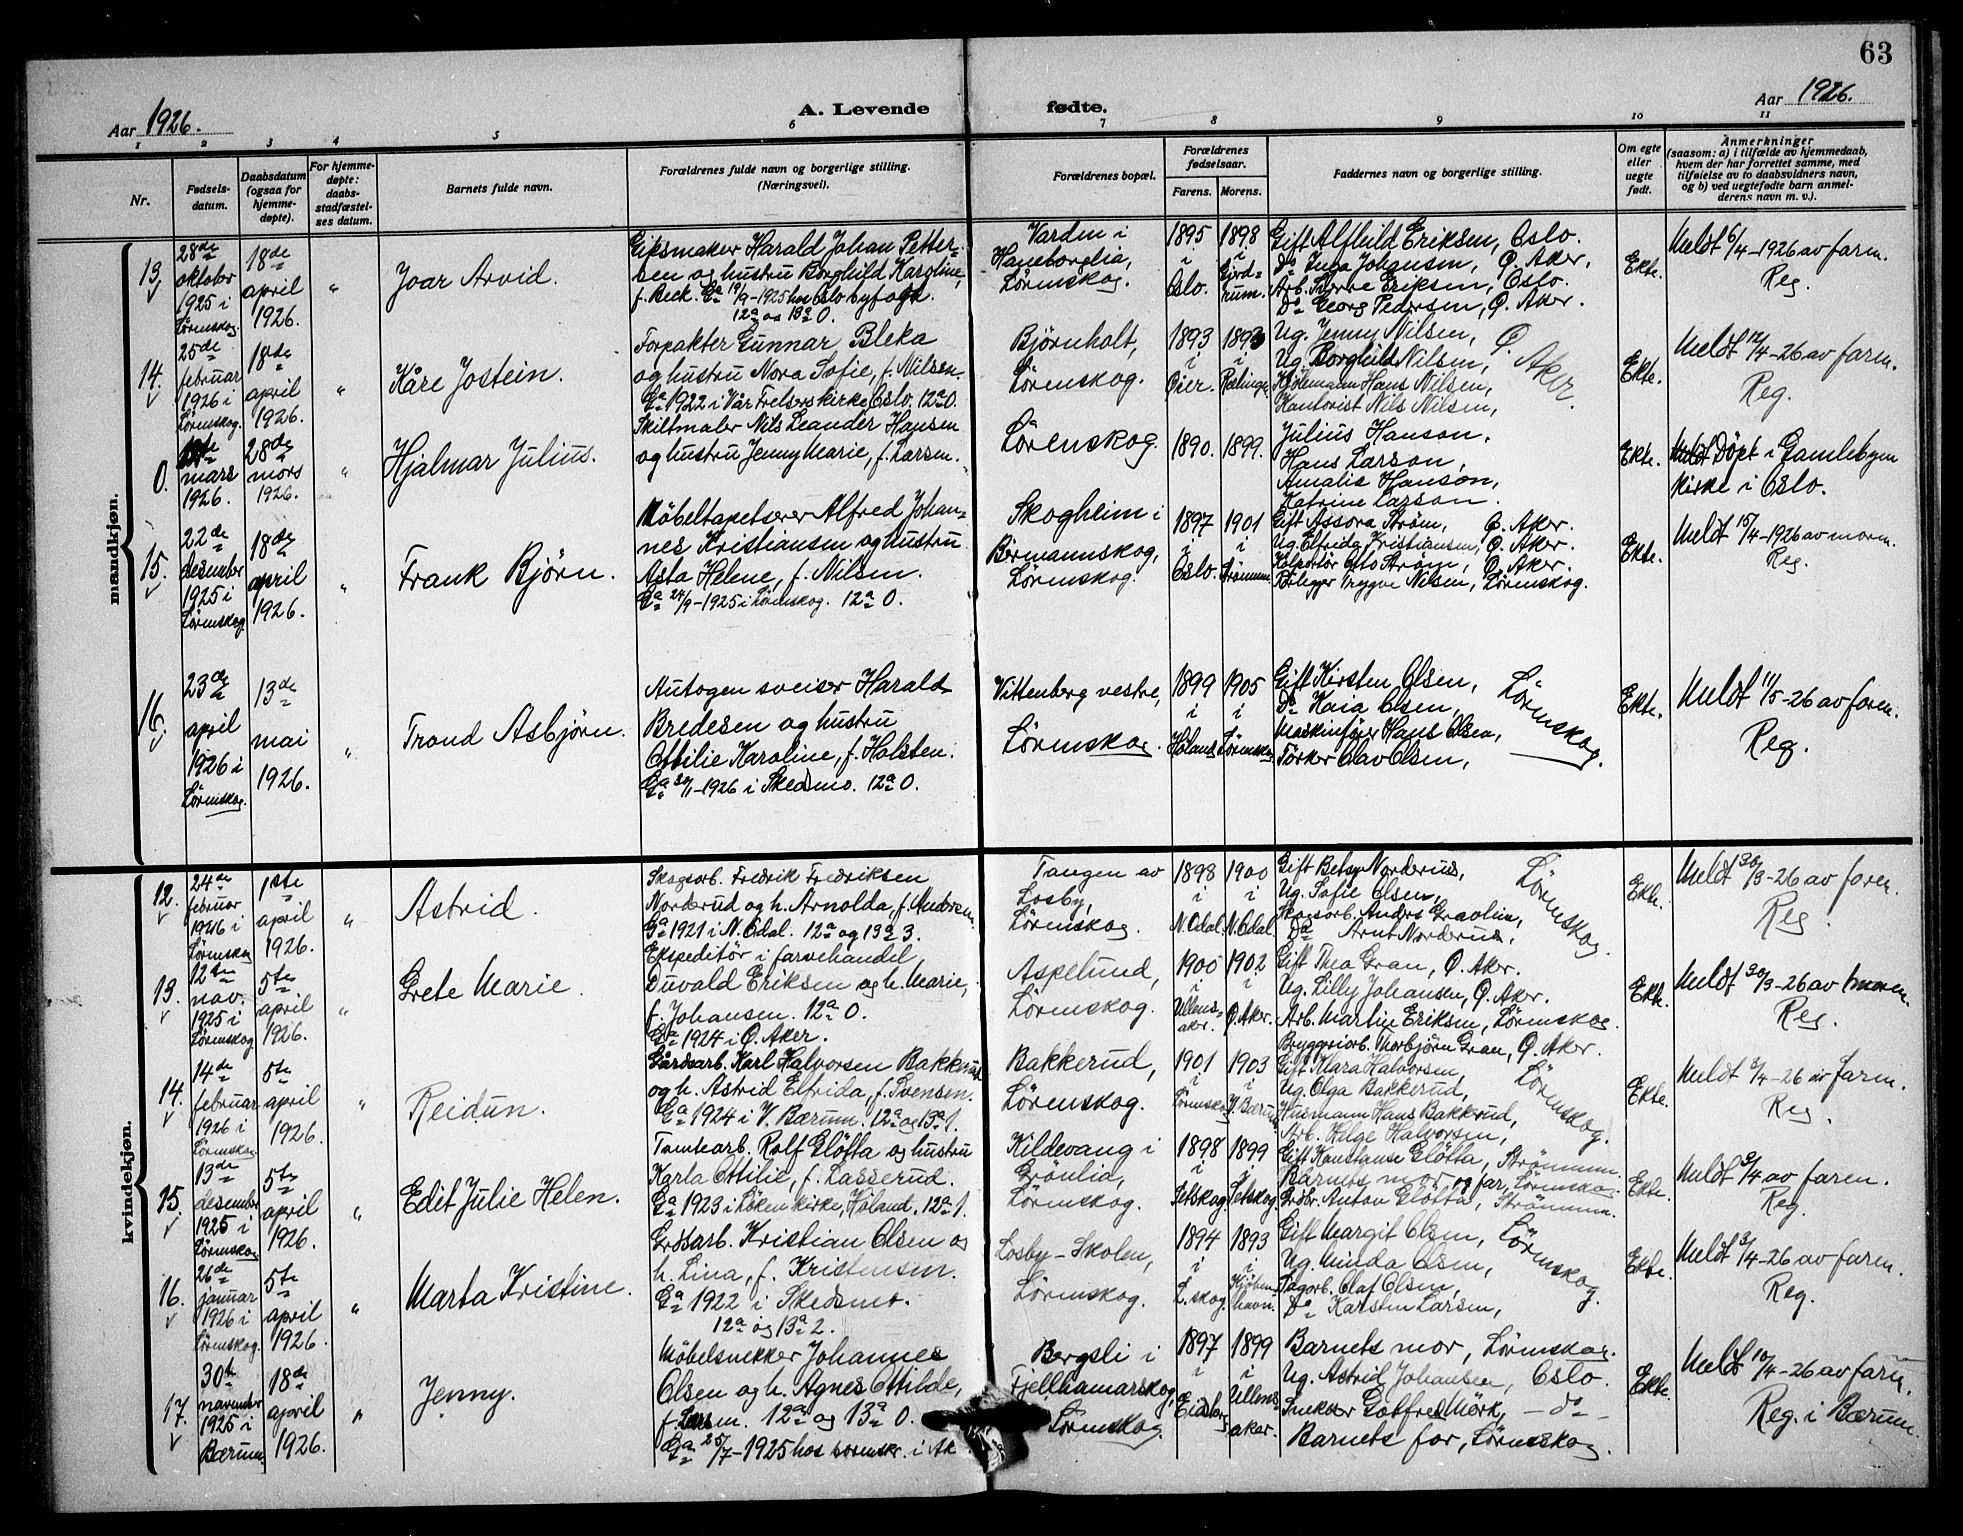 63
Aar 1926.
A. Levende fødte.
Aar 1926.
1 2 3 4 5 6 7 8 9 10 11
Nr.
Fødsels-
datum.
Daabsdatum
(ogsaa for
hjemme-
døpte).
For hjemme-
døpte:
daabs-
stadfæstel-
ses datum.
Barnets fulde navn.
Forældrenes fulde navn og borgerlige stilling.
(Næringsvei).
Forældrenes bopæl.
Forældrenes
fødselsaar.
Farens. Morens.
Faddernes navn og borgerlige stilling.
Om egte
eller
uegte
født.
Anmerkninger
(saasom: a) i tilfælde av hjemmedaab,
hvem der har forrettet samme, med
tilføielse av to daabsvidners navn,
og b) ved uegtefødte barn anmel-
derens navn m. v.).
mandkjøn.
13.
28de
oktober
1925 i
Lørenskog.
18de
april
1926.
"
Joar Arvid.
Gipsmaker Harald Johan Petter-
sen og hustru Borghild Karoline,
f. Beck. Ga 19/9-1925 hos Oslo byfogd.
12a og 13a 0.
Varden i
Haneborglia,
Lørenskog.
1895
i
Oslo.
1898
i
Gjerd-
rum.
Gift Alfhild Eriksen, Oslo.
Do Inga Johansen, Ø. Aker.
Arb. Sverre Eriksen, Oslo.
Do Georg Pedersen, Ø. Aker.
Ekte.
Meldt 6/4-1926 av faren.
Reg.
14.
25de
februar
1926 i
Lørenskog.
18de
april
1926.
"
Kåre Jostein.
Forpakter Gunnar Bleka
og hustru Nora Sofie, f. Nilsen.
Ga 1922 i Vår Frelsers kirke, Oslo. 12a 0.
Bjørnholt,
Lørenskog.
1893
i
Øier.
1893
i
Rælingen
Ug. Jenny Nilsen,
Ug. Borghild Nilsen,
Kjølemann Hans Nilsen,
Kontorist Nils Nilsen,
Ø. Aker.
Ekte.
Meldt 12/4-26 av faren.
Reg.
0.
mars
1926.
28de
mars
1926.
"
Hjalmar Julius.
Skiltmaler Nils Leander Hansen
og hustru Jenny Marie, f. Larsen.
Lørenskog.
1890.
1899.
Julius Hanson.
Hans Larson,
Amalie Hanson,
Katrine Larson.
Ekte.
Døpt i Gamlebyen
kirke i Oslo.
15.
22de
desember
1925 i
Lørenskog
18de
april
1926.
"
Frank Bjørn.
Møbeltapetserer Alfred Johan-
nes Kristiansen og hustru
Asta Helene, f. Nilsen.
Ga 24/9-1925 i Lørenskog. 12a 0.
Skogheim i
Bermannskog,
Lørenskog.
1897
i
Oslo.
1901
i
Strømmen.
Gift Assora Strøm, Ø. Aker.
Ug. Elfrida Kristiansen, Ø. Aker.
Kolportør Otto Strøm, Ø. Aker.
Rørlegger Trygve Nilsen, Lørenskog.
Ekte.
Meldt 15/4-1926 av moren.
Reg.
16.
23de
april
1926 i
Lørenskog.
13de
mai
1926.
"
Trond Asbjørn.
Autogen sveiser Harald
Bredesen og hustru
Ottilie Karoline, f. Holsten.
Ga 30/1-1926 i Skedsmo. 12a 0.
Vittenberg vestre,
Lørenskog.
1899
i
Høland
1905
i
Lørenskog
Gift Kirsten Olsen,
Do Kaia Olsen,
Maskinfører Hans Olsen,
Tørker Olav Olsen,
Lørenskog.
Ekte.
Meldt 11/5-26 av faren.
Reg.
kvindekjøn.
12.
24de
februar
1926 i
Lørenskog
1ste
april
1926.
"
Astrid.
Skogsarb. Fredrik Fredriksen
Norderud og h. Arnolda, f. Andersen.
Ga 1921 i N. Odal. 12a og 13a 3.
Tangen av
Losby,
Lørenskog.
1898
i
N. Odal.
1900
i
N. Odal.
Gift Betsy Norderud,
Ug. Sofie Olsen,
Skogsarb. Anders Gravlien,
Do Arnt Norderud,
Lørenskog.
Ekte.
Meldt 30/3-26 av faren.
Reg.
13.
12te
nov.
1925 i
Lørenskog
5te
april
1926.
"
Grete Marie.
Ekspeditør i farvehandel,
Duvald Eriksen og h. Marie,
f. Johansen. 12a 0.
Ga 1924 i Ø. Aker.
Aspelund,
Lørenskog.
1900
i
Ullens-
aker.
1902
i
Ø. Aker.
Gift Thea Gran, Ø. Aker.
Ug. Lilly Johansen, Ø. Aker.
Arb. Martin Eriksen, Lørenskog.
Bryggeriarb. Thorbjørn Gran, Ø. Aker.
Ekte.
Meldt 30/3-26 av moren.
Reg.
14.
14de
februar
1926 i
Lørenskog.
5te
april
1926.
"
Reidun.
Gårdsarb. Karl Halvorsen Bakkerud
og h. Astrid Elfrida, f. Svensen.
Ga 1924 i V. Bærum. 12a og 13a 1.
Bakkerud,
Lørenskog.
1901
i
Lørenskog
1903
i
V. Bærum
Gift Mara Halvorsen,
Ug. Olga Bakkerud,
Husmann Hans Bakkerud,
Arb. Helge Halvorsen,
Lørenskog.
Ekte.
Meldt 3/4-26 av faren.
Reg.
15.
13de
desember
1925 i
Lørenskog
5te
april
1926.
"
Edit Julie Helen.
Tomtearb. Rolf Gløtta og hustru
Karla Ottilie, f. Lasserud.
Ga 1923 i Løken kirke, Høland. 12a 1.
Kildevang i
Grønlia,
Lørenskog.
1898
i
Setskog
1899
i
Setskog
Gift Konstanse Gløtta, Strømmen.
Barnets mor og far, Lørenskog.
Grdbr. Anton Gløtta, Strømmen.
Ekte.
Meldt 3/4 av faren.
Reg.
16.
26de
januar
1926 i
Lørenskog.
5te
april
1926.
"
Marta Kristine.
Grdsarb. Kristian Olsen og
h. Lina, f. Kristensen.
Ga 1922 i Skedsmo.
12a og 13a 2.
Losby-Skolen,
Lørenskog.
1894
i
L.skog.
1893
i
Kjøben-
havn.
Gift Margit Olsen,
Ug. Minda Olsen,
Dagarb. Olaf Olsen,
Do Karsten Larsen,
Lørenskog.
Ekte.
Meldt 3/4-26 av faren.
Reg.
17.
30te
november
1925 i
Bærum.
18de
april
1926.
"
Jenny.
Møbelsnekker Johannes
Olsen og h. Agnes Otilde,
12a og 13a 0.
Ga 25/7-1925 hos sorenskr. i Ak
Bergsli i
Fjellhamarskog,
Lørenskog.
1897
i
Eidsberg
1899
i
Ullens-
aker.
Barnets mor, Lørenskog.
Ug. Astrid Johansen, Oslo.
Snekker Gotfred Mørk, - do -
Barnets far, Lørenskog.
Ekte.
Meldt 10/4-26 av faren.
Reg. i Bærum.